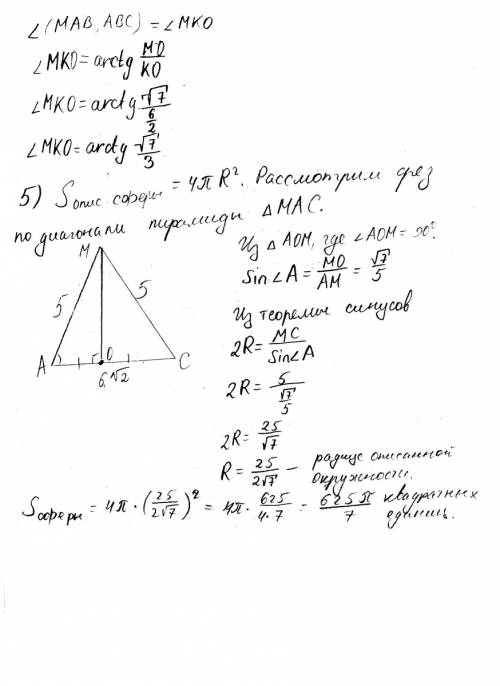 ∠(MAB, ABC) = ∠MKO
∠MKO = arctg MO/KO
∠MKO = arctg √7/(6/2)
∠MKO = arctg √7/3
5) Sопис. сферы = 4πR². Рассмотрим срез
по диагонали пирамиды △MAC.
M
5
5
A
O
C
6√2
Из △AOM, где ∠AOM = 90°.
Sin∠A = MO/AM = √7/5
Из теоремы синусов
2R = MC/Sin∠A
2R = 5/(√7/5)
2R = 25/√7
R = 25/2√7 – радиус описанной
окружности.
Sсферы = 4π · (25/2√7)² = 4π · 625/4·7 = 625π/7 квадратных
единиц.